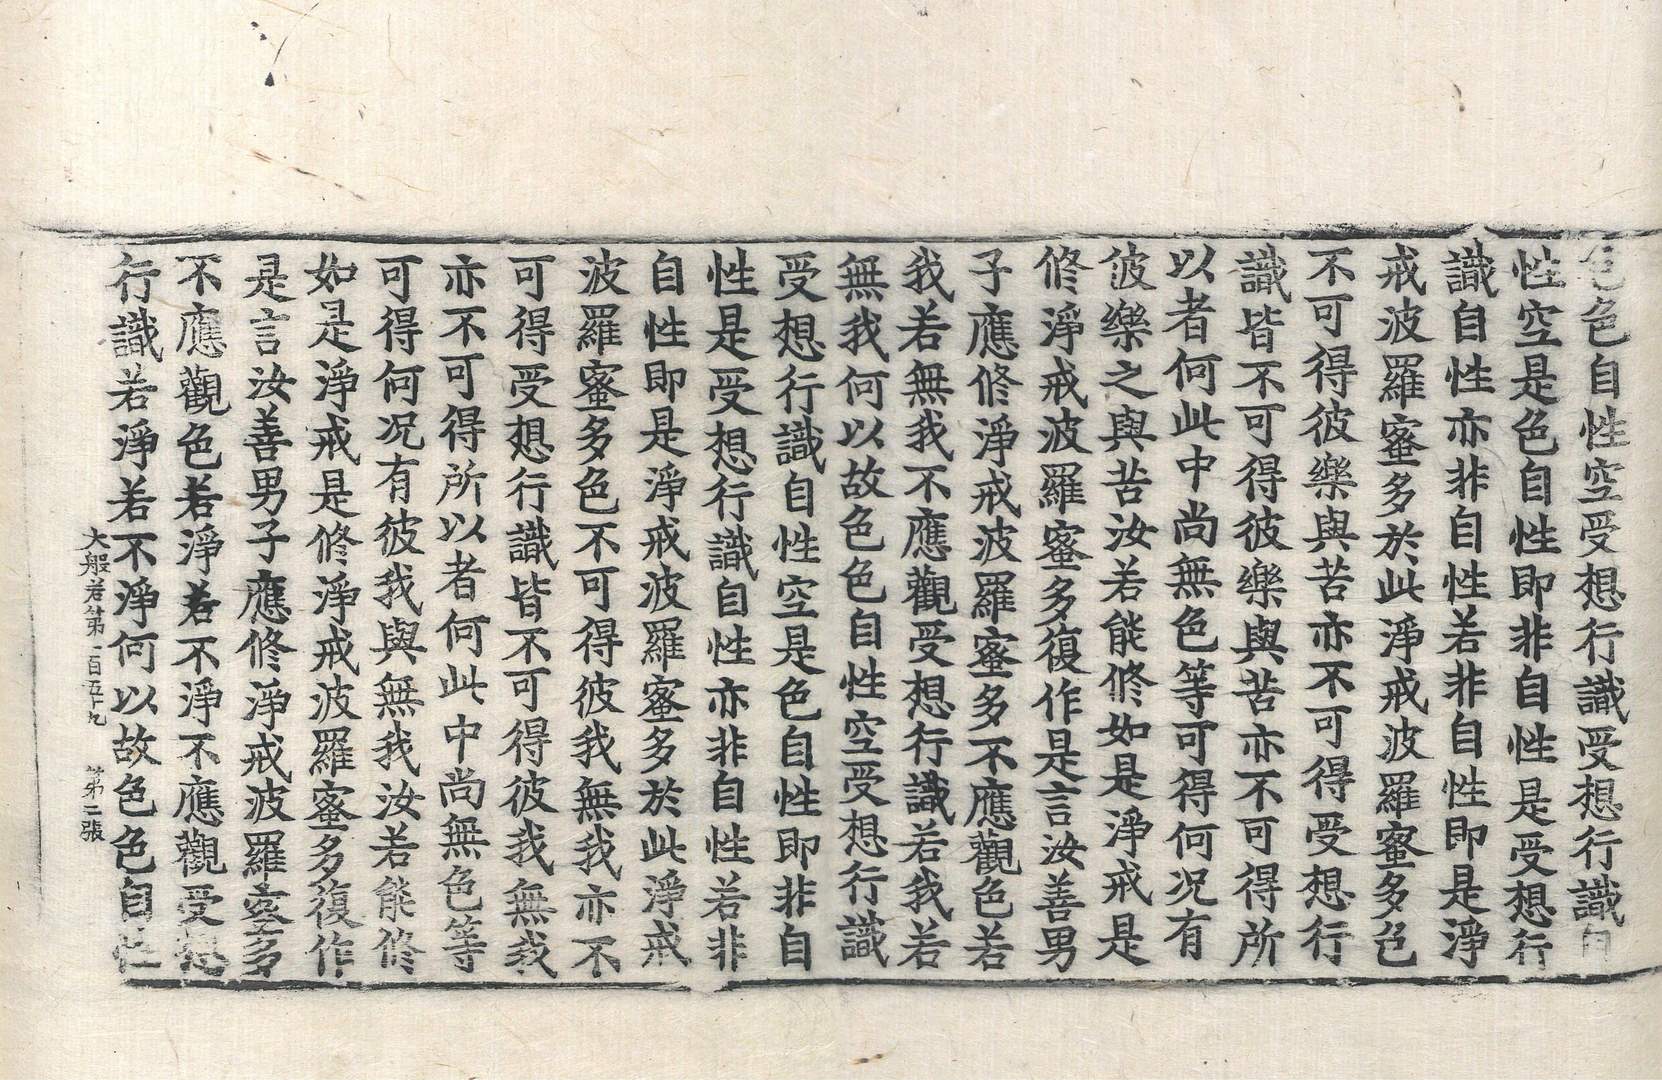 色色自性空受想行識受想行識自
性空是色自性即非自性是受想行
識自性亦非自性若非自性即是淨
戒波羅蜜多於此淨戒波羅蜜多色
不可得彼樂與苦亦不可得受想行
識皆不可得彼樂與苦亦不可得所
以者何此中尚無色等可得何況有
彼樂之與苦汝若能修如是淨戒是
修淨戒波羅蜜多復作是言汝善男
子應修淨戒波羅蜜多不應觀色若
我若無我不應觀受想行識若我若
無我何以故色色自性空受想行識
受想行識自性空是色自性即非自
性是受想行識自性亦非自性若非
自性即是淨戒波羅蜜多於此淨戒
波羅蜜多色不可得彼我無我亦不
可得受想行識皆不可得彼我無我
亦不可得所以者何此中尚無色等
可得何況有彼我與無我汝若能修
如是淨戒是修淨戒波羅蜜多復作
是言汝善男子應修淨戒波羅蜜多
不應觀色若淨若不淨不應觀受想
行識若淨若不淨何以故色色自性
大般若第一百五十九 第二張